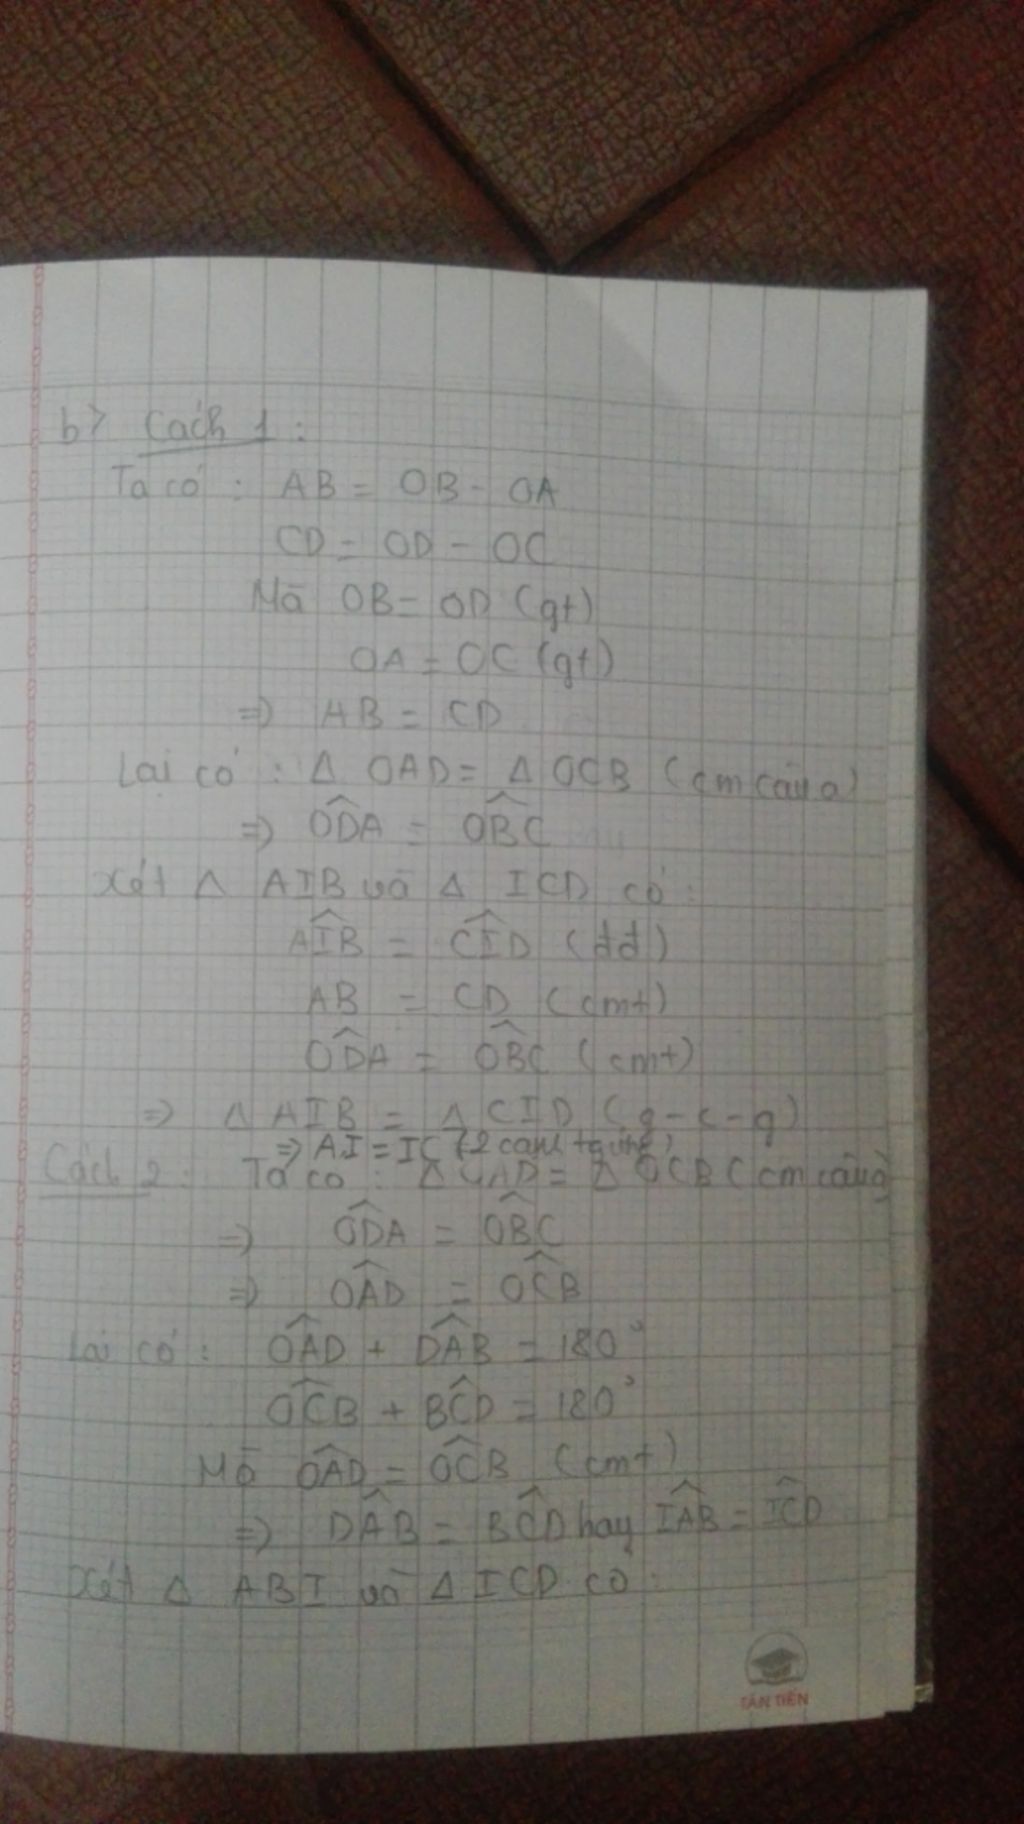 b> Cách 1:
Ta có: AB = OB - OA
CD = OD - OC
Mà OB = OD (gt)
OA = OC (gt)
=> AB = CD
Lại có: Δ OAD = Δ OCB (cm câu a)
=> ODA = OBC
Xét Δ AIB và Δ ICD có:
AIB = CID (đđ)
AB = CD (cmt)
ODA = OBC (cmt)
=> Δ AIB = Δ CID (g-c-g)
=> AI = IC (2 cạnh)
Cách 2: Ta có: Δ OAD = Δ OCB (cm câu a)
=> ODA = OBC
=> OAD = OCB
Lại có: OAD + DAB = 180°
OCB + BCD = 180°
Mà OAD = OCB (cmt)
=> DAB = BCD hay IAB = ICD
Xét Δ ABI và Δ ICD có:
TÂN TIẾN